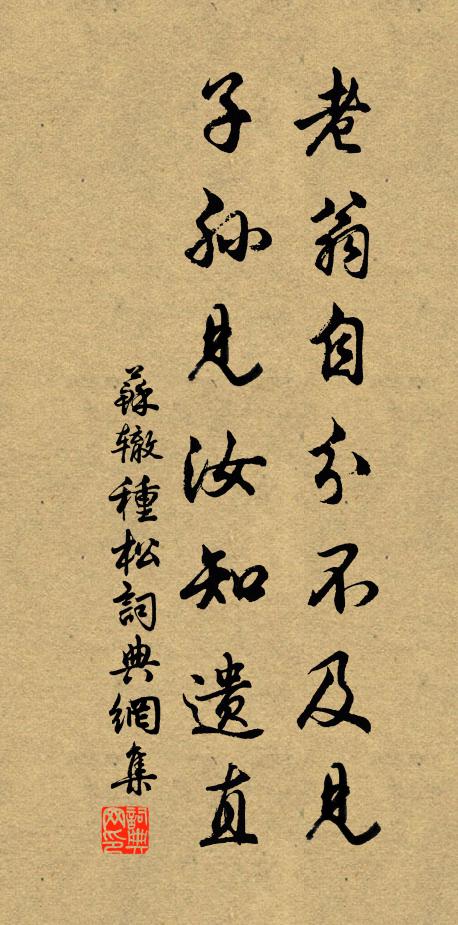 老翁自分不及見
子孫見汝知遺直
蘇辙種松詞典網集
詞典网印